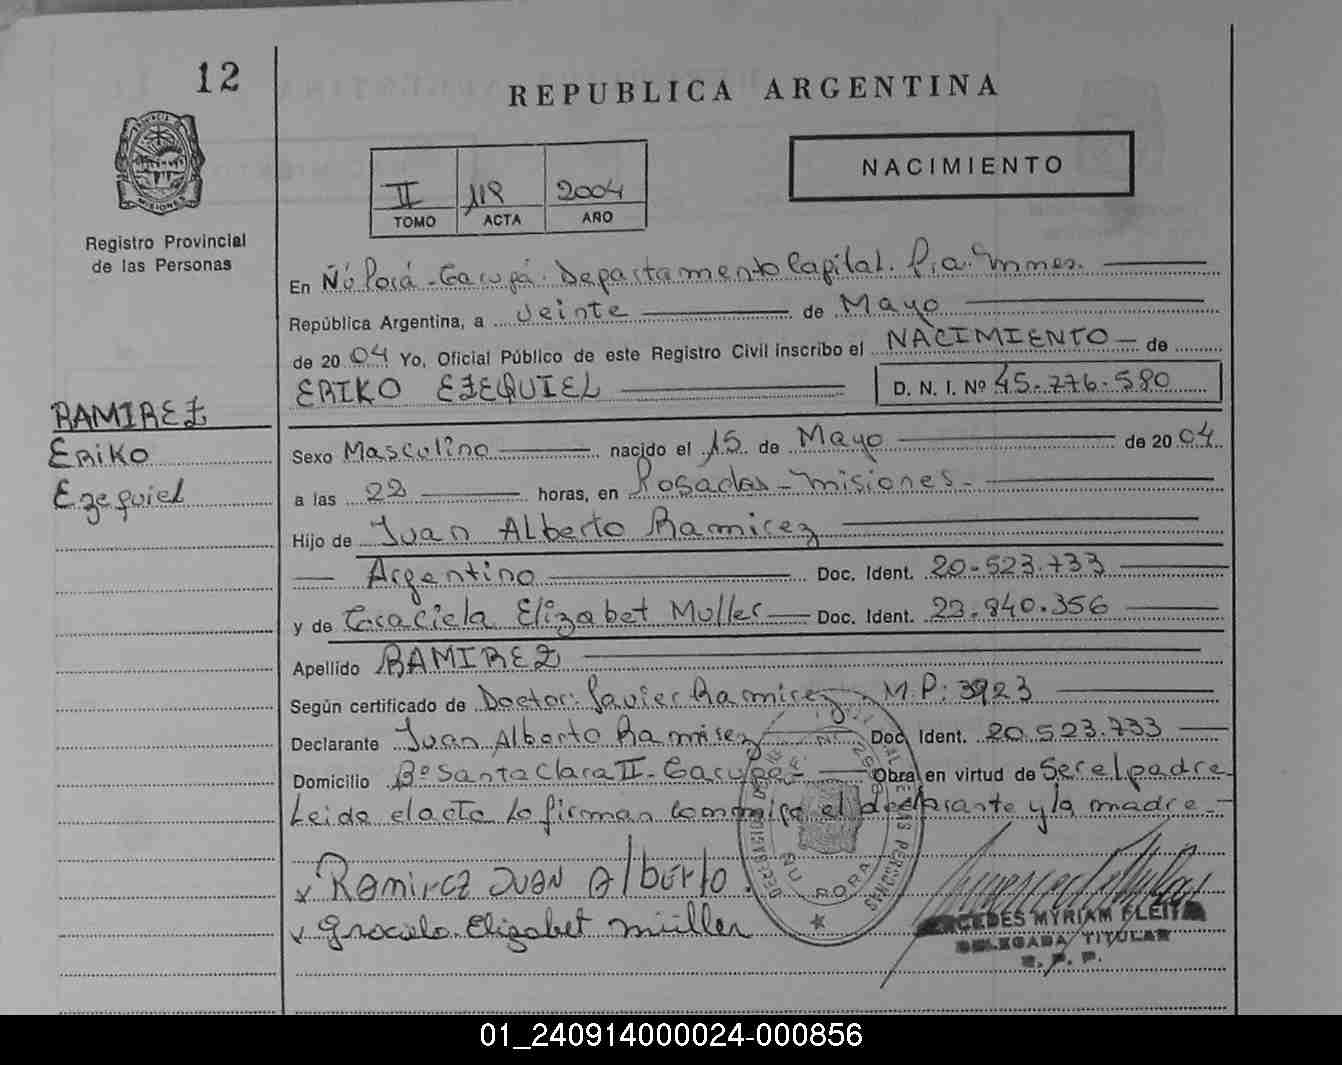 12
REPUBLICA ARGENTINA
NACIMIENTO
II 118 2004
TOMO ACTA AÑO
Registro Provincial
de las Personas
En Ñú Porá - Garupá - Departamento Capital. Pia. Mnes.
República Argentina, a veinte de Mayo
de 2004 Yo, Oficial Público de este Registro Civil inscribo el NACIMIENTO de
ERIKO EZEQUIEL D. N. I. Nº 45.776.580
RAMIREZ
Eriko
Ezequiel
Sexo Masculino nacido el 15 de Mayo de 2004
a las 22 horas, en Posadas - Misiones -
Hijo de Juan Alberto Ramirez
Argentino Doc. Ident. 20.523.733
y de Graciela Elizabet Muller Doc. Ident. 23.840.356
Apellido RAMIREZ
Según certificado de Doctor: Javier Ramirez M.P: 3923
Declarante Juan Alberto Ramirez Doc. Ident. 20.523.733
Domicilio Bº Santa Clara II - Garupá - Obra en virtud de Ser el padre -
Leida el acta la firman conmigo el declarante y la madre -
x Ramirez Juan Alberto.
x Graciela Elizabet Müller
ÑU PORA
MYRIAM FLEITA
DELEGADA TITULAR
R. P. P.
01_240914000024-000856